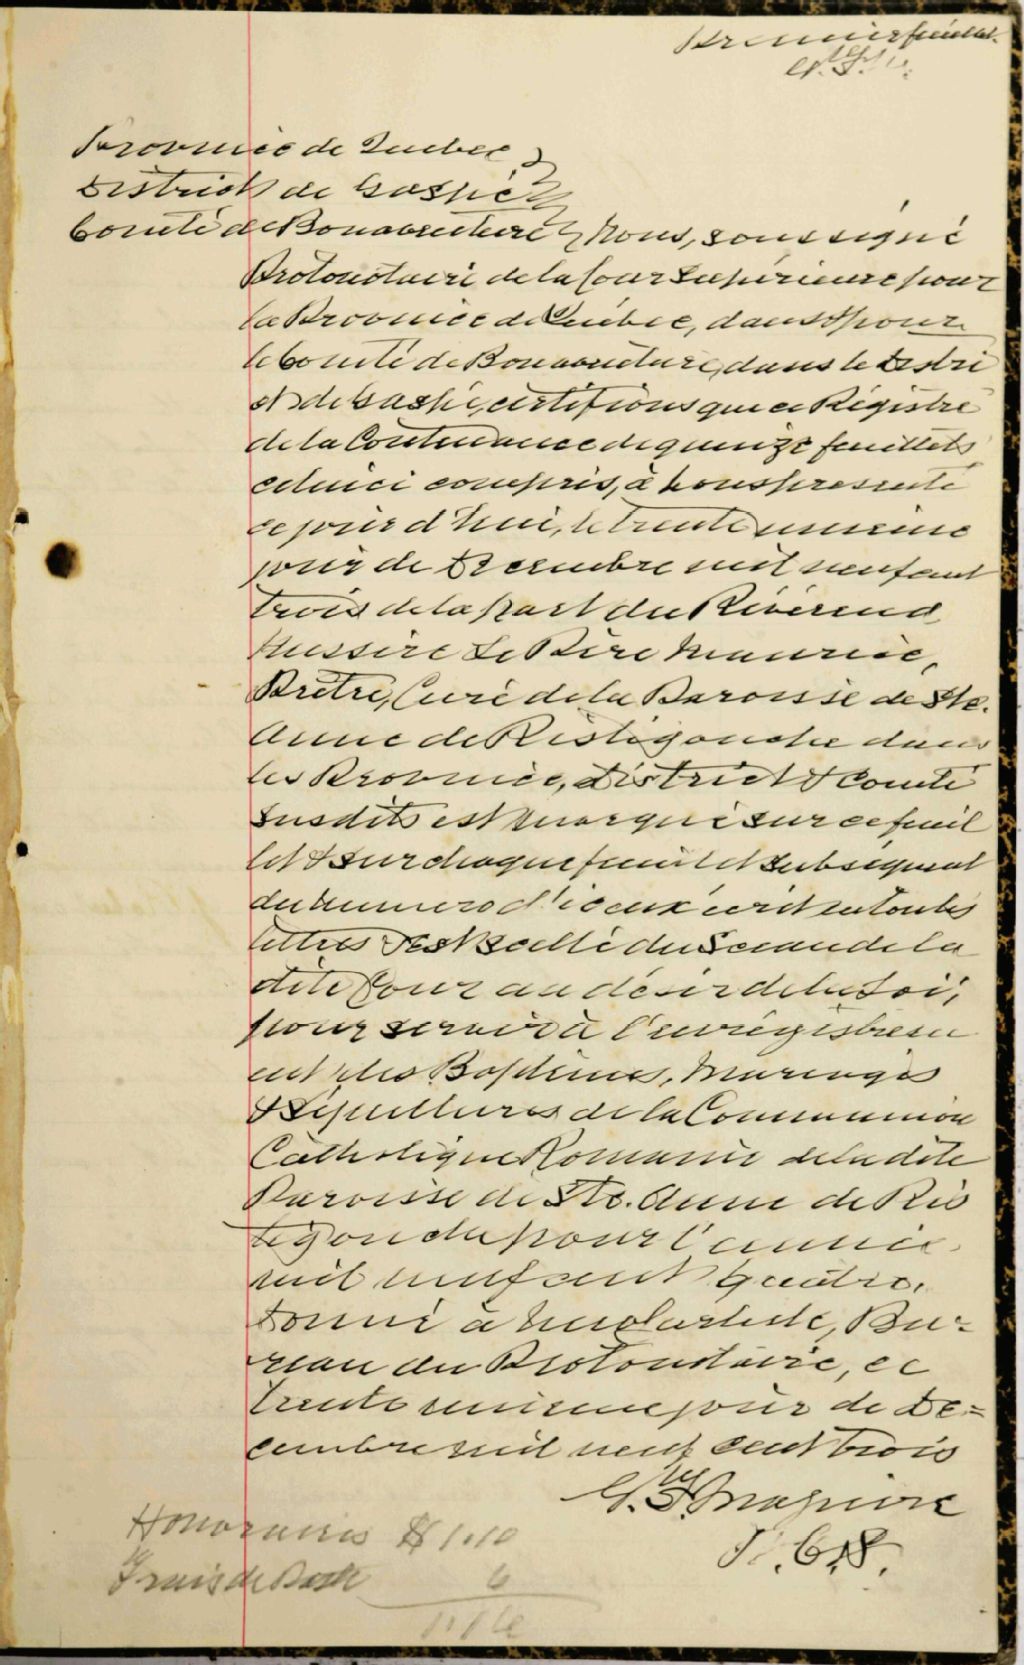 Premier feuillet.
Province de Quebec
District de Gaspé
Comté de Bonaventure Nous, soussigné
Protonotaire de la Cour Supérieure pour
la Province de Québec, dans & pour
le Comté de Bonaventure, dans le Distri
ct de Gaspé, certifions que ce Régistre
de la Contenance de quinze feuillets
celuici compris, à nous présenté
ce jour d'hui, le trente unième
jour de Décembre mil neuf cent
trois de la part du Révérend
Messire Le Père Maurice,
Prêtre, Curé de la Paroisse de Ste.
Anne de Ristigouche dans
les Province, District & Comté
susdits est marqué sur ce feuil
let & sur chaque feuillet subséquent
du numero d'iceux écrit en toutes
lettres & est scellé du Sceau de la
dite Cour au désir de la Loi,
pour servir à l'enrégistrem
ent des Baptêmes, Mariages
& Sépultures de la Communion
Catholique Romaine de la dite
Paroisse de Ste. Anne de Ris
tigouche pour l'année
mil neuf cent quatre.
Donné à New Carlisle, Bu-
reau du Protonotaire, ce
trente unième jour de De=
cembre mil neuf cent trois
Maguire
P. C. S.
Honoraires $1.10
Frais de Poste 6
1.16